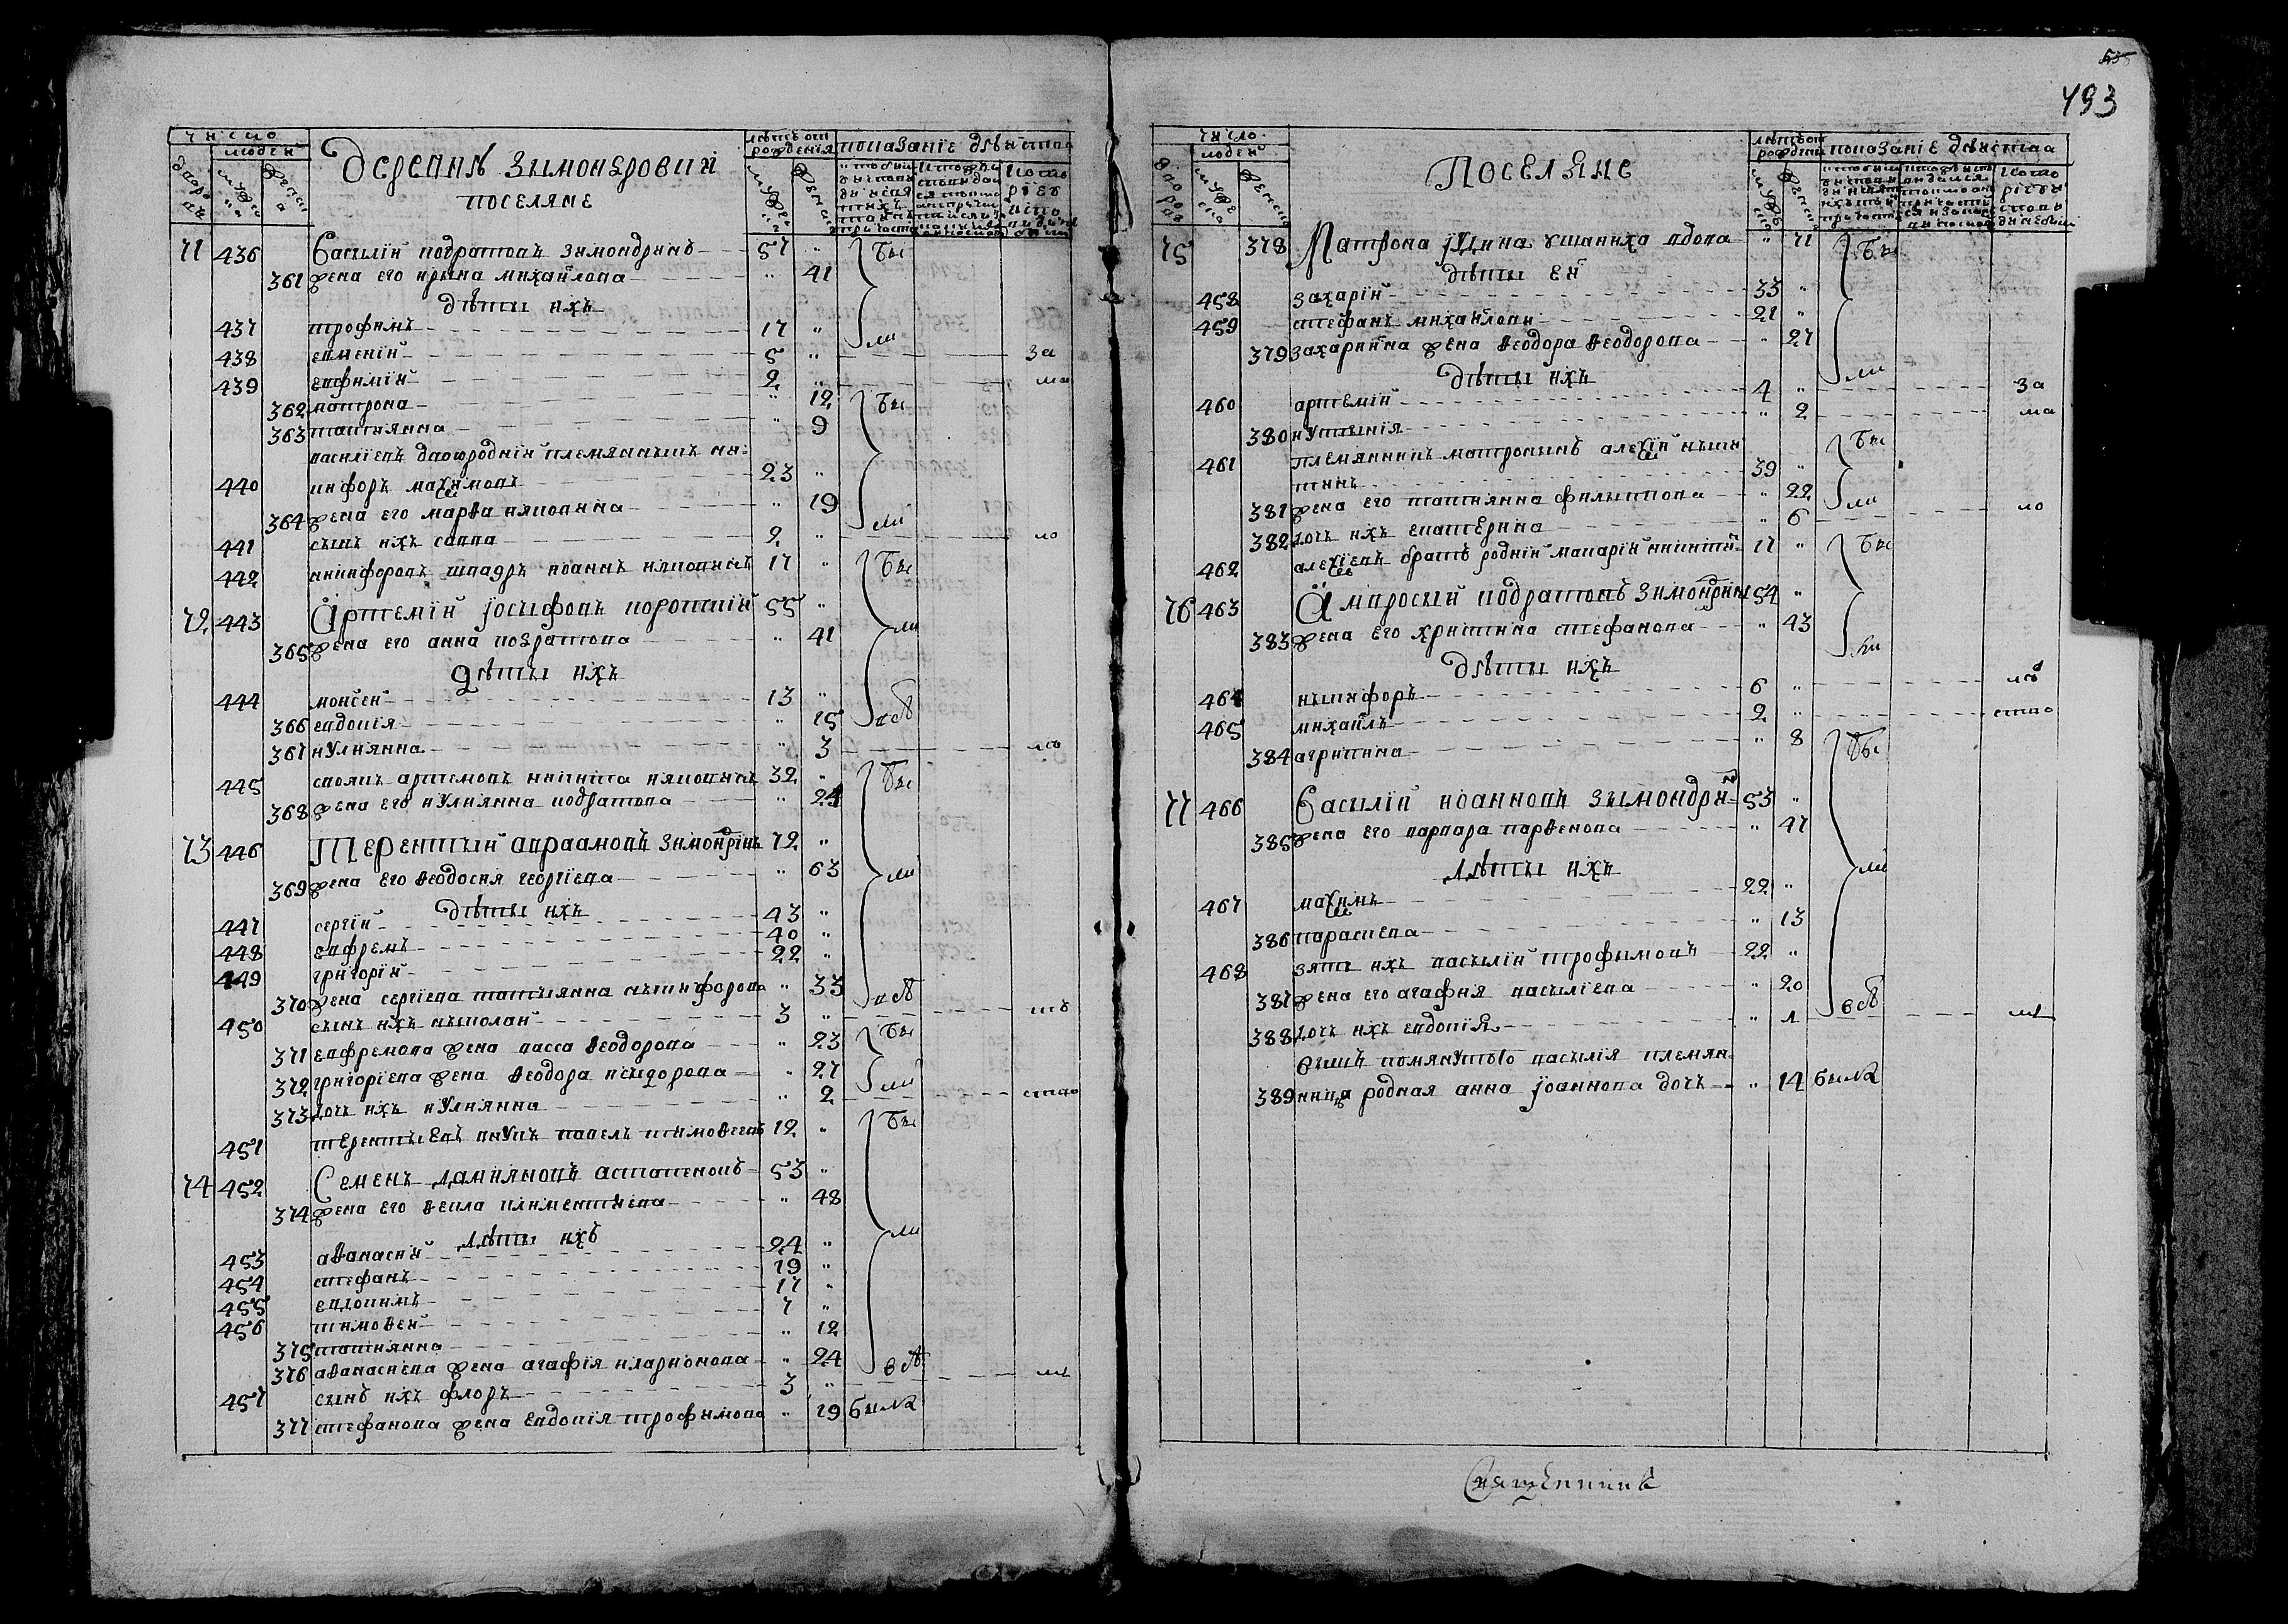 493
число
людей
Деревнѣ Зимондровки
поселяне
лѣтъ от рожденія
показаніе дѣйства
71 436 Василій кодратовъ зимондринъ 57 „ бы
361 жена его ирына михайлова „ 41
дѣти ихъ
437 трофимъ 17 „ ли
438 евмений 5 „ за
439 евфимій 2 „ ма
362 матрона „ 12 бы
363 татиянна „ 9
василіевъ двоюродній племянныкъ ни-
440 кифоръ маѯимовъ 23 „
364 жена его марѳа няковына „ 19 ли
441 сынъ ихъ савва 2 „ ло
442 никифоровъ швагръ иоаннъ няковынъ 17 „ бы
72 443 Артемій іосыфовъ короткій 55 „
365 жена его анна кодратова „ 41 ли
дѣти ихъ
444 моисей 13 „
366 евдокія „ 15 всѣ
367 иулиянна „ 3 лѣ
445 своякъ артемовъ никита няковынъ 32 „ бы
368 жена его иулиянна кодратова „ 24
73 446 Терентый авраамовъ зимондринъ 72 „
369 жена его ѳеодосия георгіева „ 63 ли
дѣти ихъ
447 сергій 43 „
448 евфремъ 40 „
449 григорій 22 „
370 жена сергіева татыянна ныкифорова „ 33 всѣ
450 сынъ ихъ ныколай 3 „ тѣ
371 евфремова жена васса ѳеодорова „ 23 бы
372 григоріева жена ѳеодора исыдорова „ 27 ли
373 дочь ихъ иулиянна „ 2 ство
451 терентыевъ внукъ павелъ тимоѳеевъ 12 „ бы
74 452 Семенъ дамияновъ астапенковъ 53 „
374 жена его ѳекла климентыева „ 48
дѣти ихъ ли
453 аѳанасий 24 „
454 стефанъ 19 „
455 евдокимъ 17 „
456 тимоѳей 7 „
375 татиянна „ 12
376 аѳанасиева жена агафія иларионова „ 24 всѣ
457 сынъ ихъ флоръ 3 „ лѣ
377 стефанова жена евдокія трофимова „ 19 была
число
людей
Поселяне
лѣтъ от рожденія
показаніе дѣйства
75 378 Матрона іудина ушаниха вдова „ 71 бы
дѣти ей
458 захарій 33 „
459 стефанъ михайловы 21 „
379 захарийна жена ѳеодора ѳеодорова „ 27
дѣти ихъ ли
460 артемій 4 „ за
380 иустынія „ 2 ма
461 племянникъ матронынъ алеѯій ныки- бы
тинъ 39 „
381 жена его татиянна филыппова „ 22 ли
382 дочь ихъ екатерина „ 6 ло
462 алеѯіевъ братъ родній макарій никитинъ 17 „ бы
76 463 Амвросый кодратовъ зимондринъ 54 „
383 жена его христина стефанова „ 43 ли
дѣти ихъ
464 ныкифоръ 6 „ лѣ
465 михаилъ 2 „ ство
384 агрипина „ 8 бы
77 466 Василій иоанновъ зымондрин 53 „
385 жена его варвара парѳенова „ 47
дѣти ихъ ли
467 маѯимъ 22 „
386 параскева „ 13
468 зять ихъ васылій трофымовъ 22 „
387 жена его агафия васыліева „ 20 всѣ
388 дочь ихъ евдокія „ 1 лѣ
вышъ помянутого васылія племян-
389 ница родная анна іоаннова дочъ „ 14 была
Священникъ